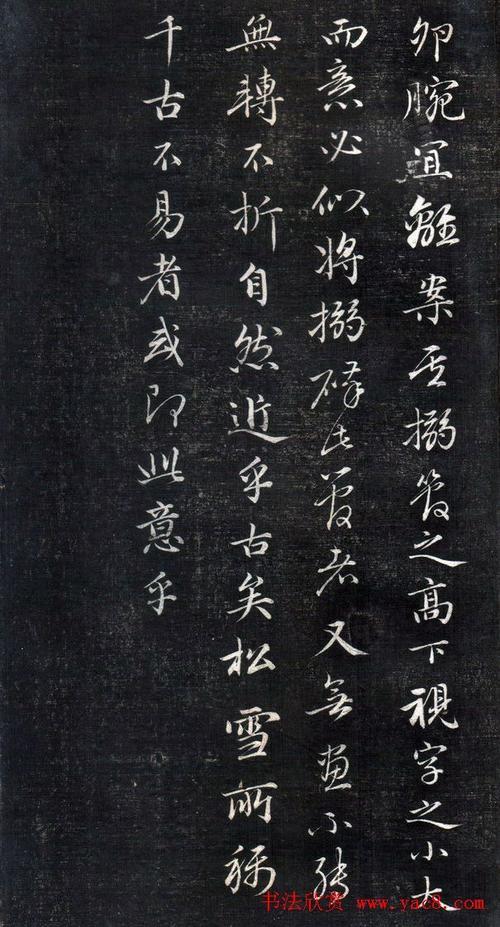 卯腕宜離案其搦管之高下視字之小大
而意必似將搦碎此管者又無畫不轉
無轉不折自然近乎古矣松雪所稱
千古不易者或即此意乎
书法欣赏 www.yac8.com